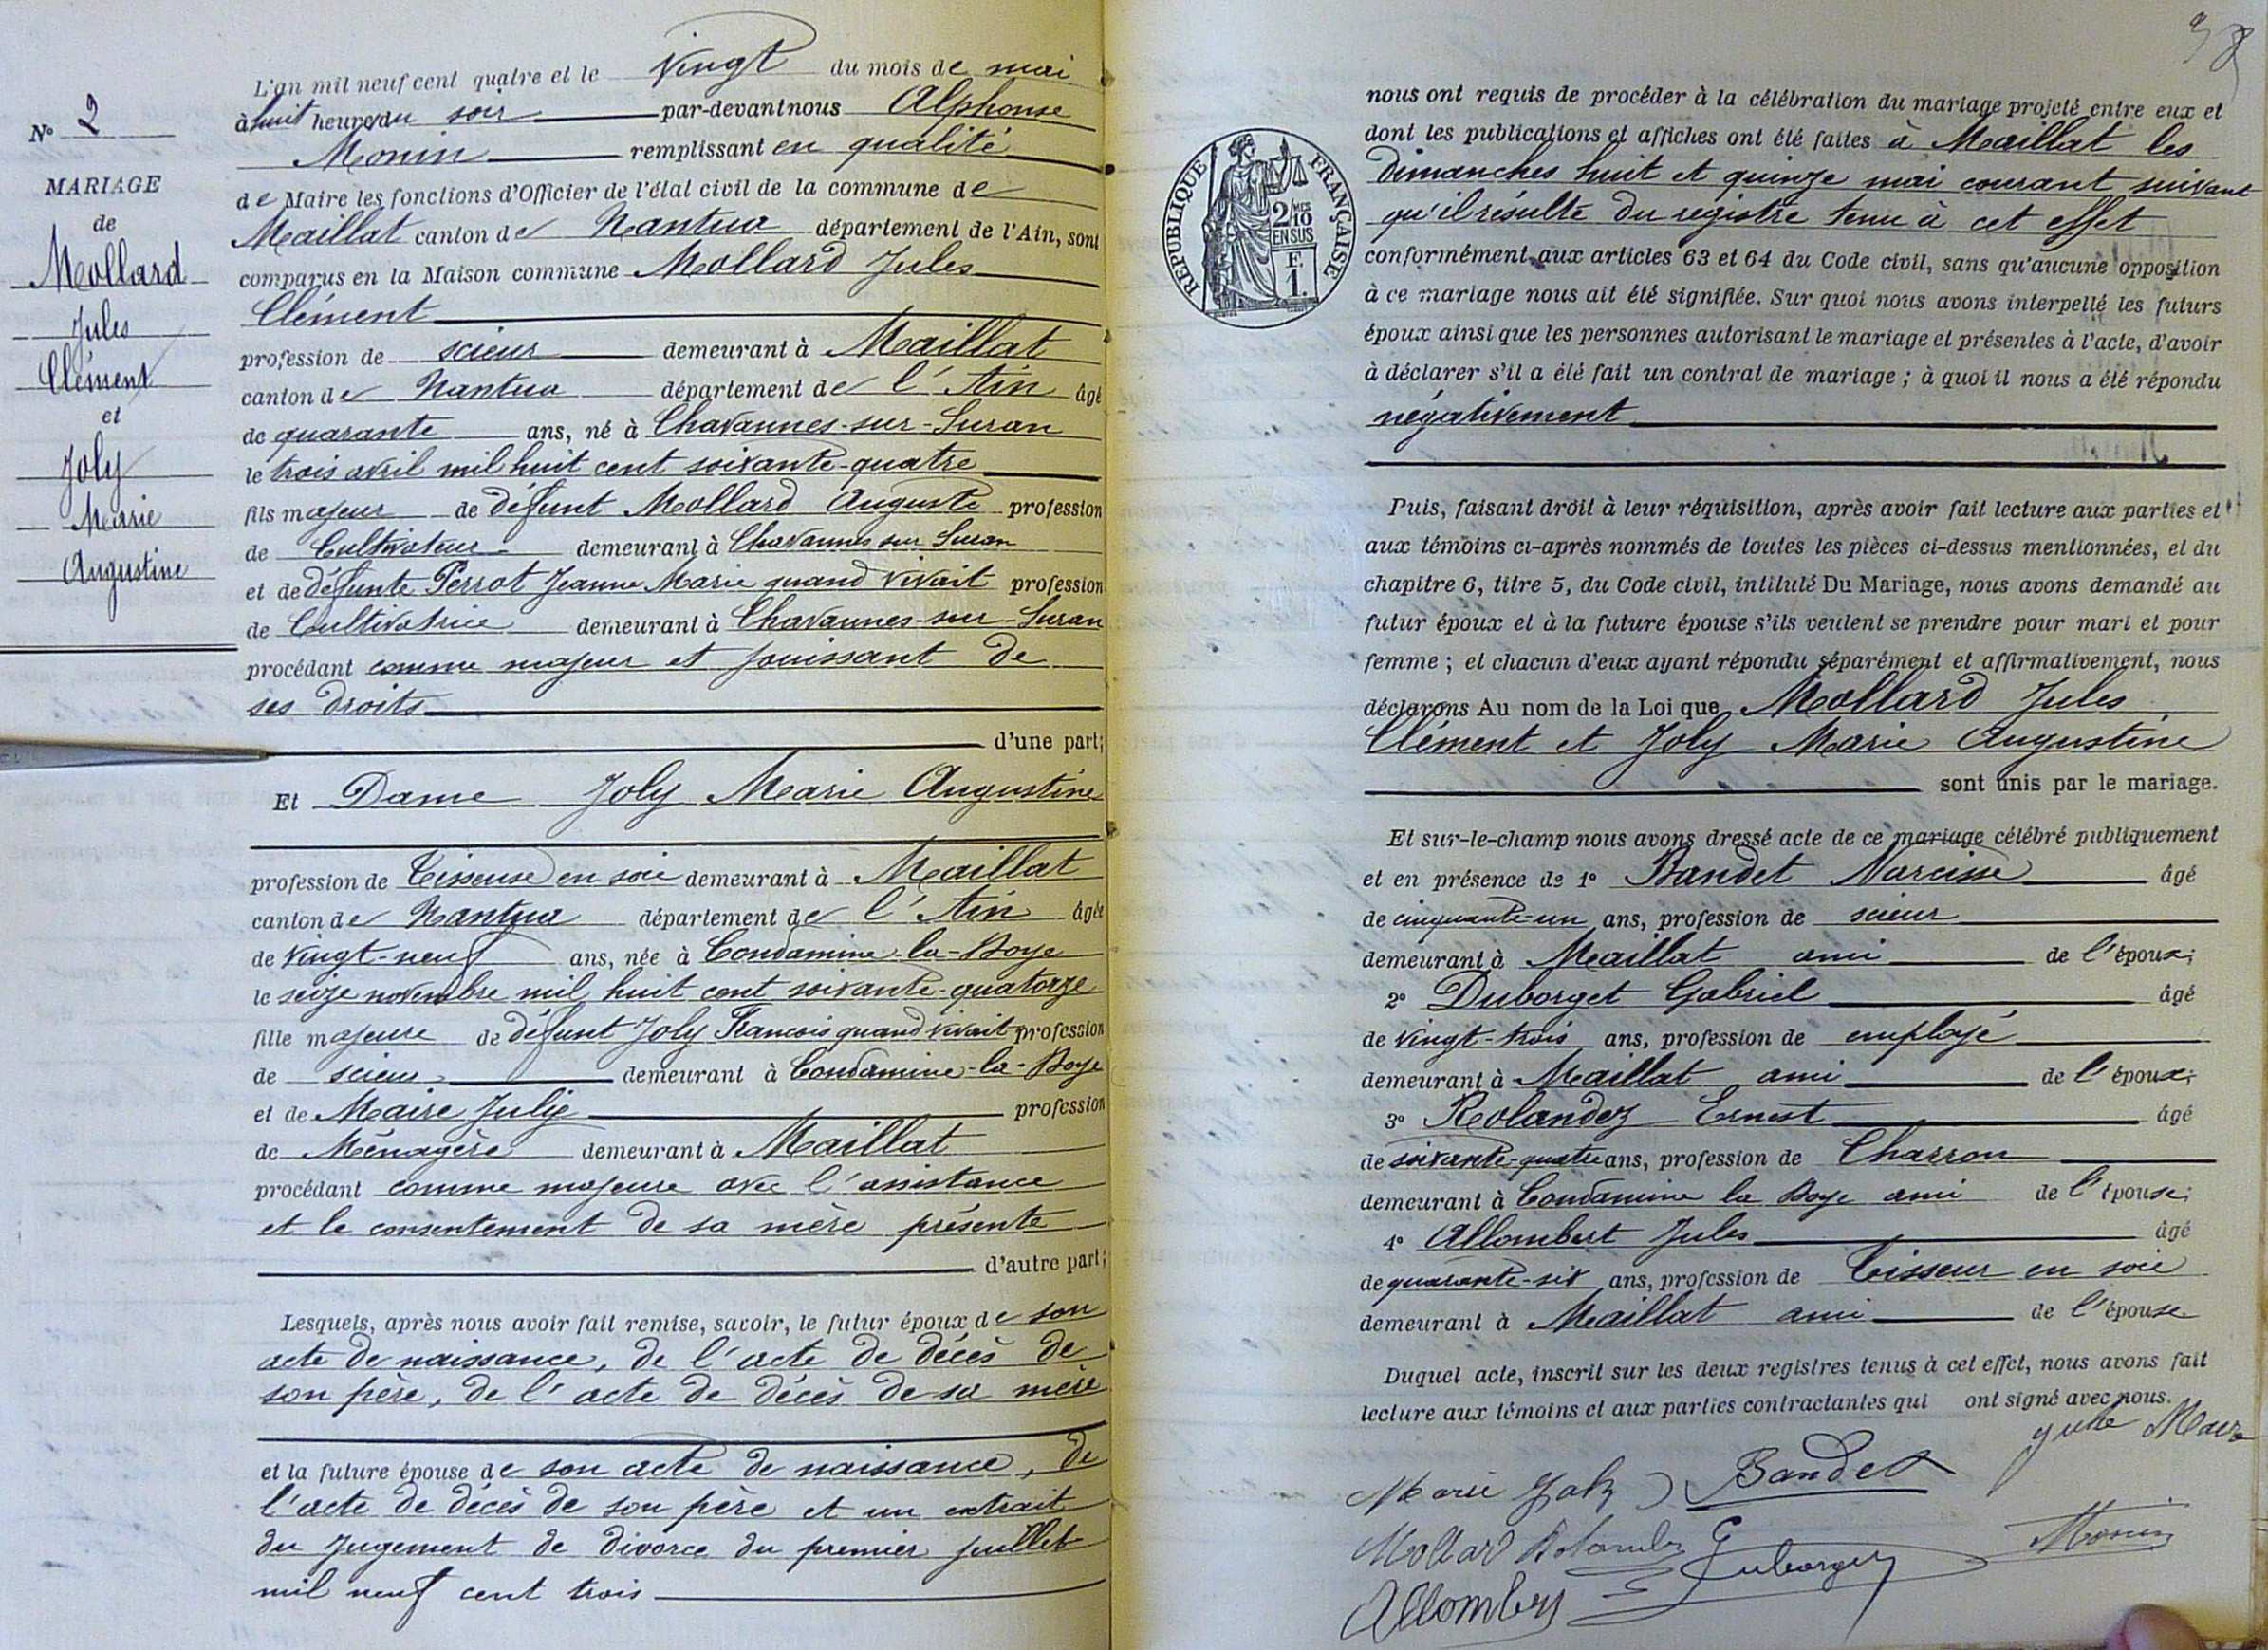 N° 2
MARIAGE
de
Mollard
Jules
Clément
et
Joly
Marie
Augustine
L'an mil neuf cent quatre et le vingt du mois de mai
à huit heures du soir par-devant nous Alphonse
Monin remplissant en qualité
de Maire les fonctions d'Officier de l'état civil de la commune de
Maillat canton de Nantua département de l'Ain, sont
comparus en la Maison commune Mollard Jules
Clément
profession de scieur demeurant à Maillat
canton de Nantua département de l'Ain âgé
de quarante ans, né à Chavannes-sur-Suran
le trois avril mil huit cent soixante-quatre
fils majeur de défunt Mollard Auguste profession
de Cultivateur demeurant à Chavannes sur Suran
et de défunte Perrot Jeanne Marie quand vivait profession
de Cultivatrice demeurant à Chavannes-sur-Suran
procédant comme majeur et jouissant de
ses droits
d'une part;
Et Dame Joly Marie Augustine
profession de Tisseuse en soie demeurant à Maillat
canton de Nantua département de l'Ain âgée
de vingt-neuf ans, née à Condamine-la-Doye
le seize novembre mil huit cent soixante-quatorze
fille majeure de défunt Joly François quand vivait profession
de scieur demeurant à Condamine-la-Doye
et de Maire Julie profession
de Ménagère demeurant à Maillat
procédant comme majeure avec l'assistance
et le consentement de sa mère présente
d'autre part;
Lesquels, après nous avoir fait remise, savoir, le futur époux de son
acte de naissance, de l'acte de décès de
son père, de l'acte de décès de sa mère
et la future épouse de son acte de naissance, de
l'acte de décès de son père et un extrait
du jugement de divorce du premier juillet
mil neuf cent trois
38
RÉPUBLIQUE FRANÇAISE
2/10 MES
EN SUS
F.
1.
nous ont requis de procéder à la célébration du mariage projeté entre eux et
dont les publications et affiches ont été faites à Maillat les
dimanches huit et quinze mai courant suivant
qu'il résulte du registre tenu à cet effet
conformément aux articles 63 et 64 du Code civil, sans qu'aucune opposition
à ce mariage nous ait été signifiée. Sur quoi nous avons interpellé les futurs
époux ainsi que les personnes autorisant le mariage et présentes à l'acte, d'avoir
à déclarer s'il a été fait un contrat de mariage; à quoi il nous a été répondu
négativement
Puis, faisant droit à leur réquisition, après avoir fait lecture aux parties et
aux témoins ci-après nommés de toutes les pièces ci-dessus mentionnées, et du
chapitre 6, titre 5, du Code civil, intitulé Du Mariage, nous avons demandé au
futur époux et à la future épouse s'ils veulent se prendre pour mari et pour
femme; et chacun d'eux ayant répondu séparément et affirmativement, nous
déclarons Au nom de la Loi que Mollard Jules
Clément et Joly Marie Augustine
sont unis par le mariage.
Et sur-le-champ nous avons dressé acte de ce mariage célébré publiquement
et en présence de 1° Bandet Narcisse âgé
de cinquante-un ans, profession de scieur
demeurant à Maillat ami de l'époux;
2° Duborget Gabriel âgé
de vingt-trois ans, profession de employé
demeurant à Maillat ami de l'époux;
3° Rolandez Ernest âgé
de soixante-quatre ans, profession de Charron
demeurant à Condamine la Doye ami de l'épouse;
4° Allombert Jules âgé
de quarante-six ans, profession de Tisseur en soie
demeurant à Maillat ami de l'épouse
Duquel acte, inscrit sur les deux registres tenus à cet effet, nous avons fait
lecture aux témoins et aux parties contractantes qui ont signé avec nous.
Julie Maire
Marie Joly Bandet
Mollard Rolandez G Duborget Monin
Allombert